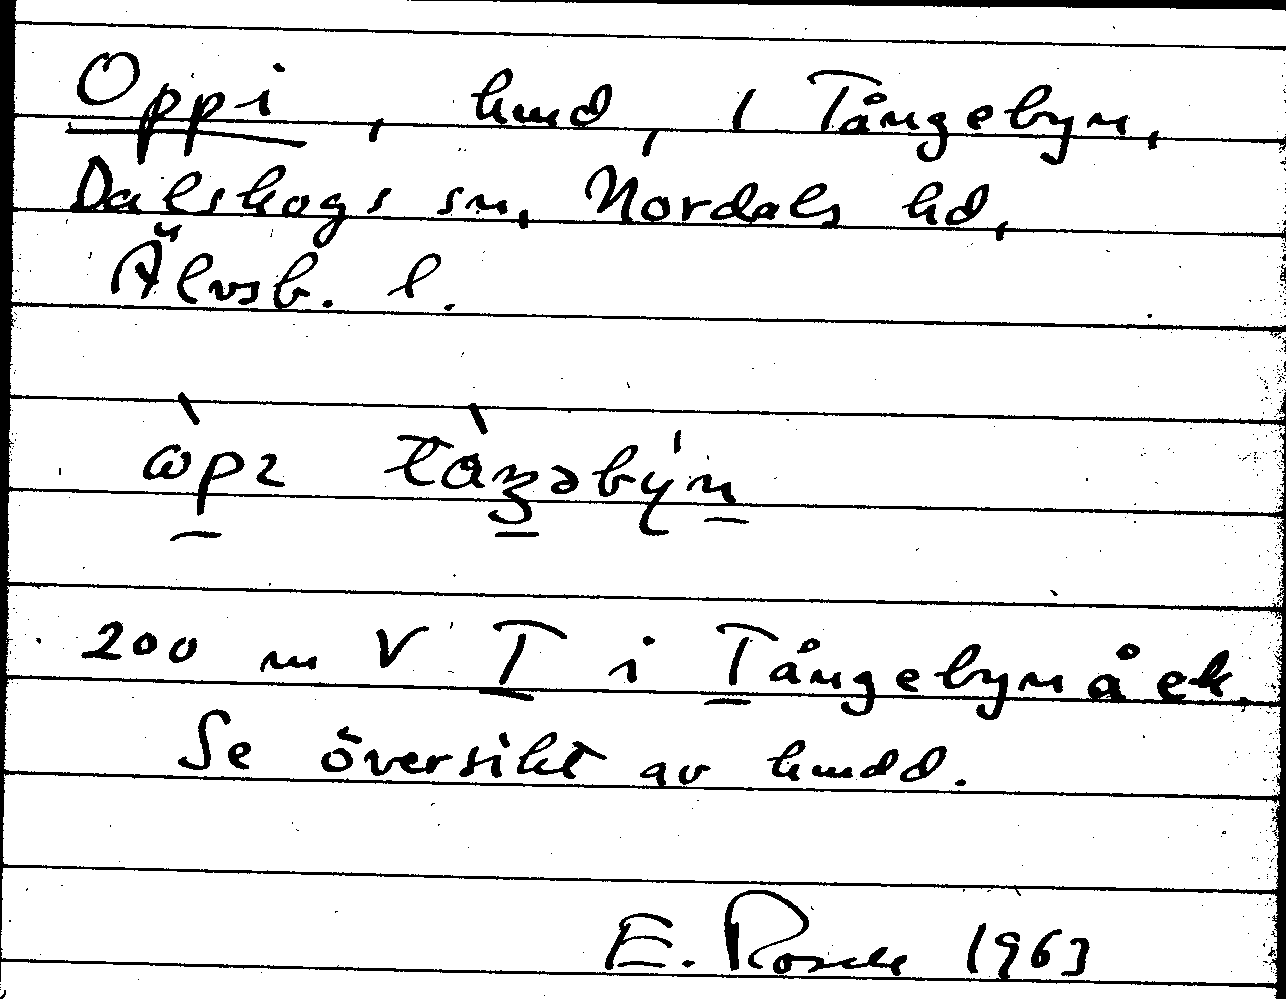 Oppi, hmd, i Tångebyn,
Dalskogs sn, Nordals hd,
Älvsb. l.
200 m V T i Tångebyn å ek.
Se översikt av hmdd.
E. Rosell 1963